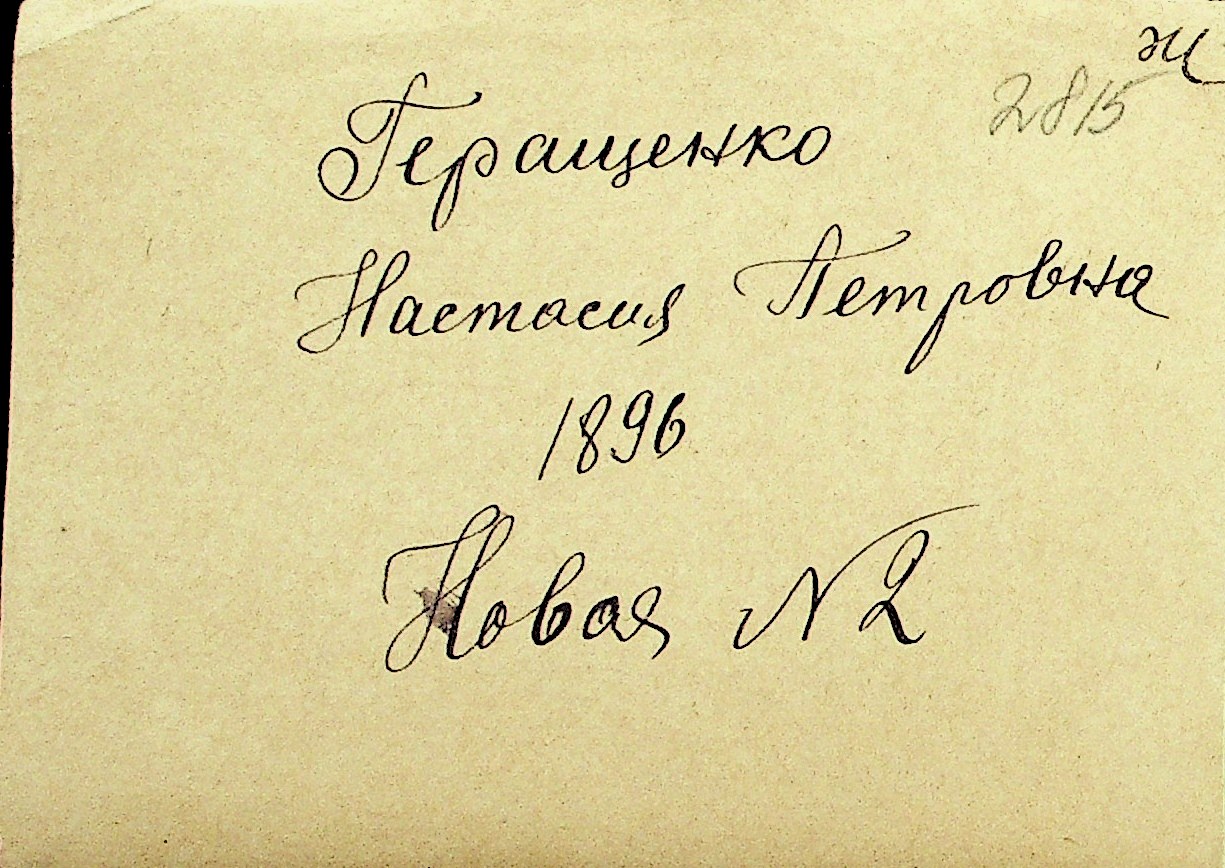 ж
2815
Геращенко
Настасия Петровна
1896
Новая N2